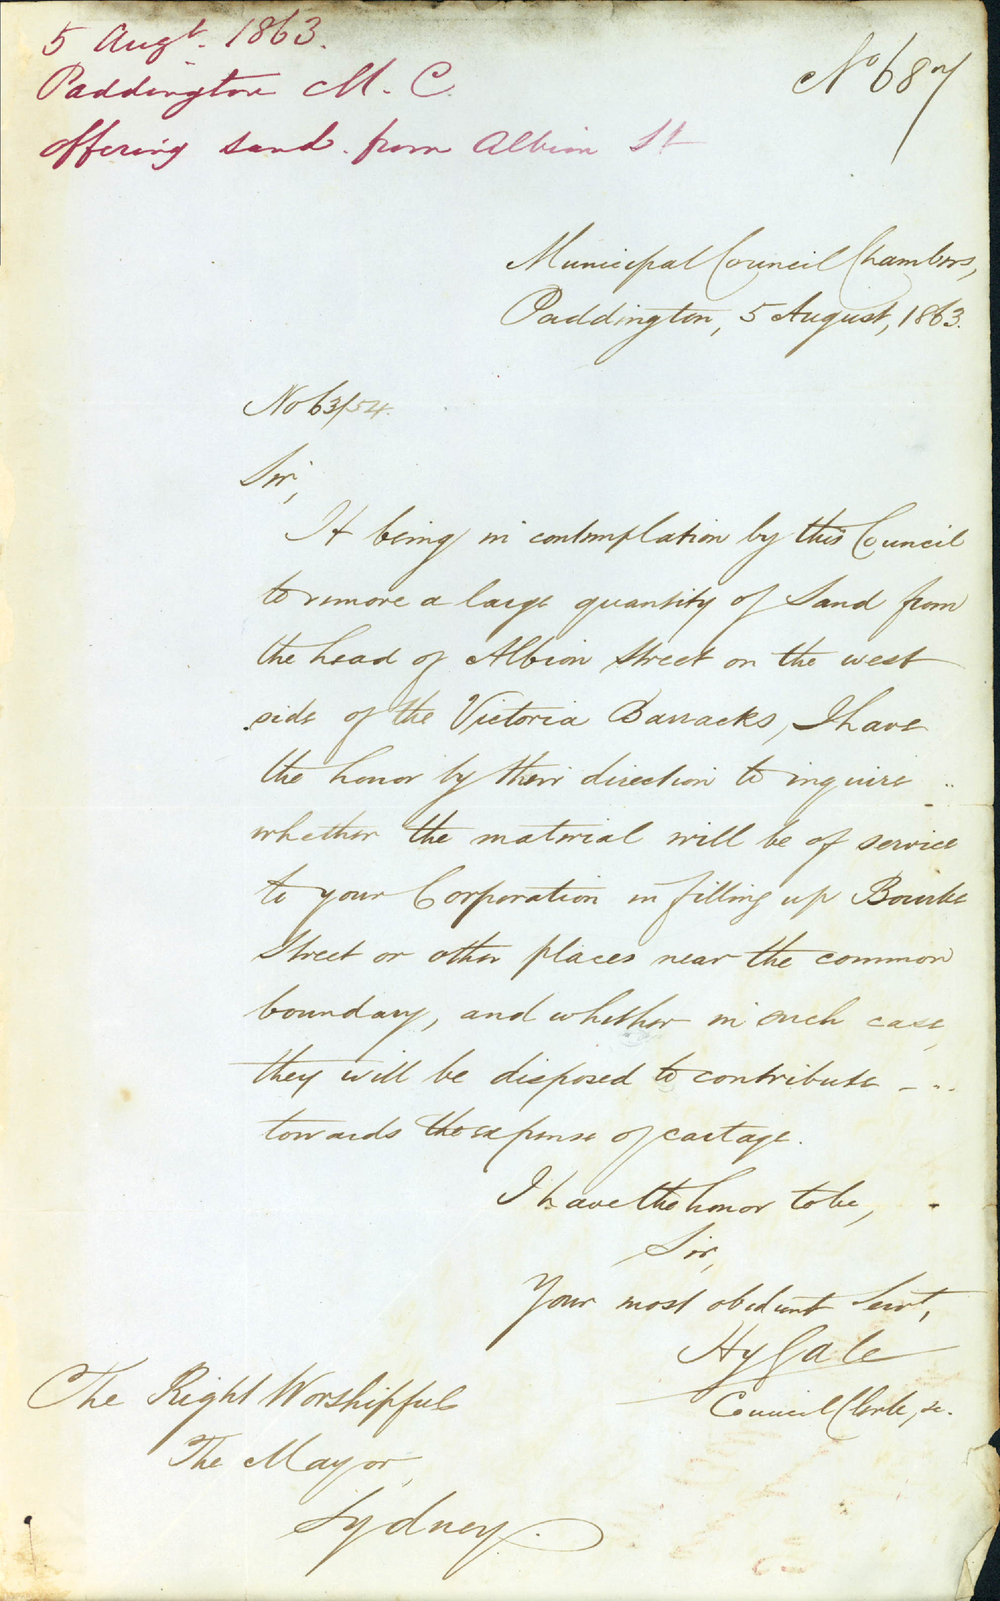 5 Augt. 1863.
Paddington M. C.
offering sand from Albion St
No 687
Municipal Council Chambers,
Paddington, 5 August, 1863.
No 63/54.
Sir,
It being in contemplation by this Council
to remove a large quantity of Sand from
the head of Albion Street on the west
side of the Victoria Barracks, I have
the honor by their direction to inquire
whether the material will be of service
to your Corporation in filling up Bourke
Street or other places near the common
boundary, and whether in such case,
they will be disposed to contribute
towards the expense of cartage.
I have the honor to be,
Sir,
Your most obedient Servt,
Hy
Council Clerk, &c.
The Right Worshipful
The Mayor,
Sydney.